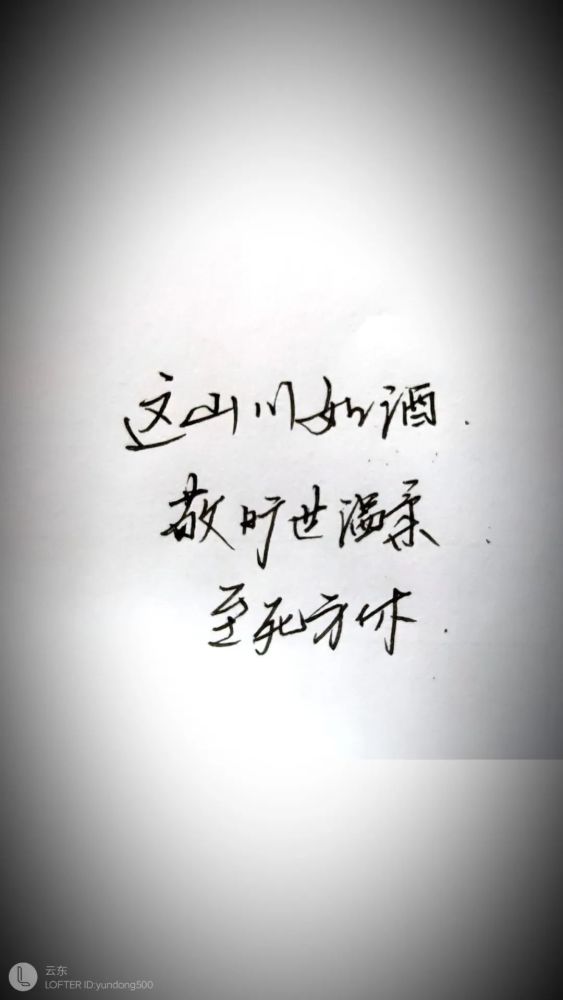 这山川如酒.
敬旷世温柔.
至死方休.
云东
LOFTER ID:yundong500